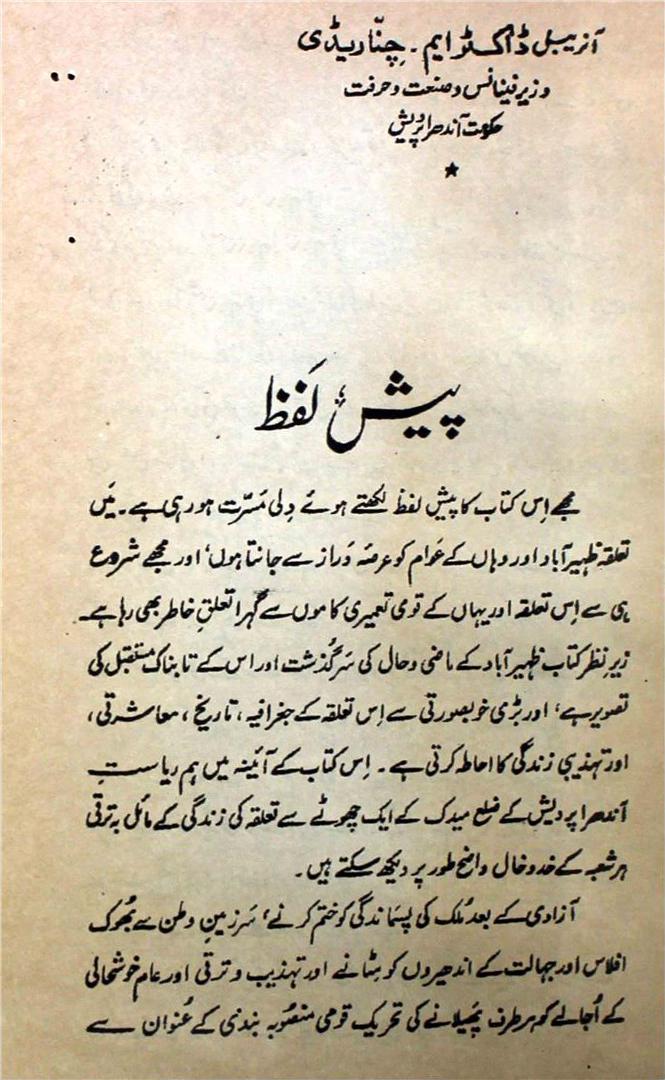 آنریبل ڈاکٹر ایم۔ چنّا ریڈی
وزیر فینانس و صنعت و حرفت
حکومت آندھرا پردیش
★
پیش لَفظ
مجھے اِس کتاب کا پیش لفظ لکھتے ہوئے دِلی مَسرّت ہو رہی ہے۔ میَں
تعلقہ ظہیرآباد اور وہاں کے عَوام کو عرصۂ دَراز سے جانتا ہوں، اور مجھے شروع
ہی سے اِس تعلقہ اور یہاں کے قومی تعمیری کاموں سے گہرا تعلقِ خاطر بھی رہا ہے۔
زیرِ نظر کتاب ظہیرآباد کے ماضی و حال کی سَرگُذشت اور اس کے تابناک مستقبل کی
تصویر ہے، اور بڑی خوبصورتی سے اِس تعلقہ کے جغرافیہ، تاریخ، معاشرتی،
اور تہذیبی زندگی کا احاطہ کرتی ہے۔ اِس کتاب کے آئینہ میں ہم ریاستِ
آندھرا پردیش کے ضلع میدک کے ایک چھوٹے سے تعلقہ کی زندگی کے مائل بہ ترقی
ہر شعبہ کے خدوخال واضح طور پر دیکھ سکتے ہیں۔
آزادی کے بعد مُلک کی پسماندگی کو ختم کرنے، سَرزمینِ وطن سے بھُوک
افلاس اور جہالت کے اندھیروں کو مِٹانے اور تہذیب و ترقی اور عام خوشحالی
کے اُجالے کو ہر طرف پَھیلانے کی تحریک قومی منصُوبہ بندی کے عُنوان سے